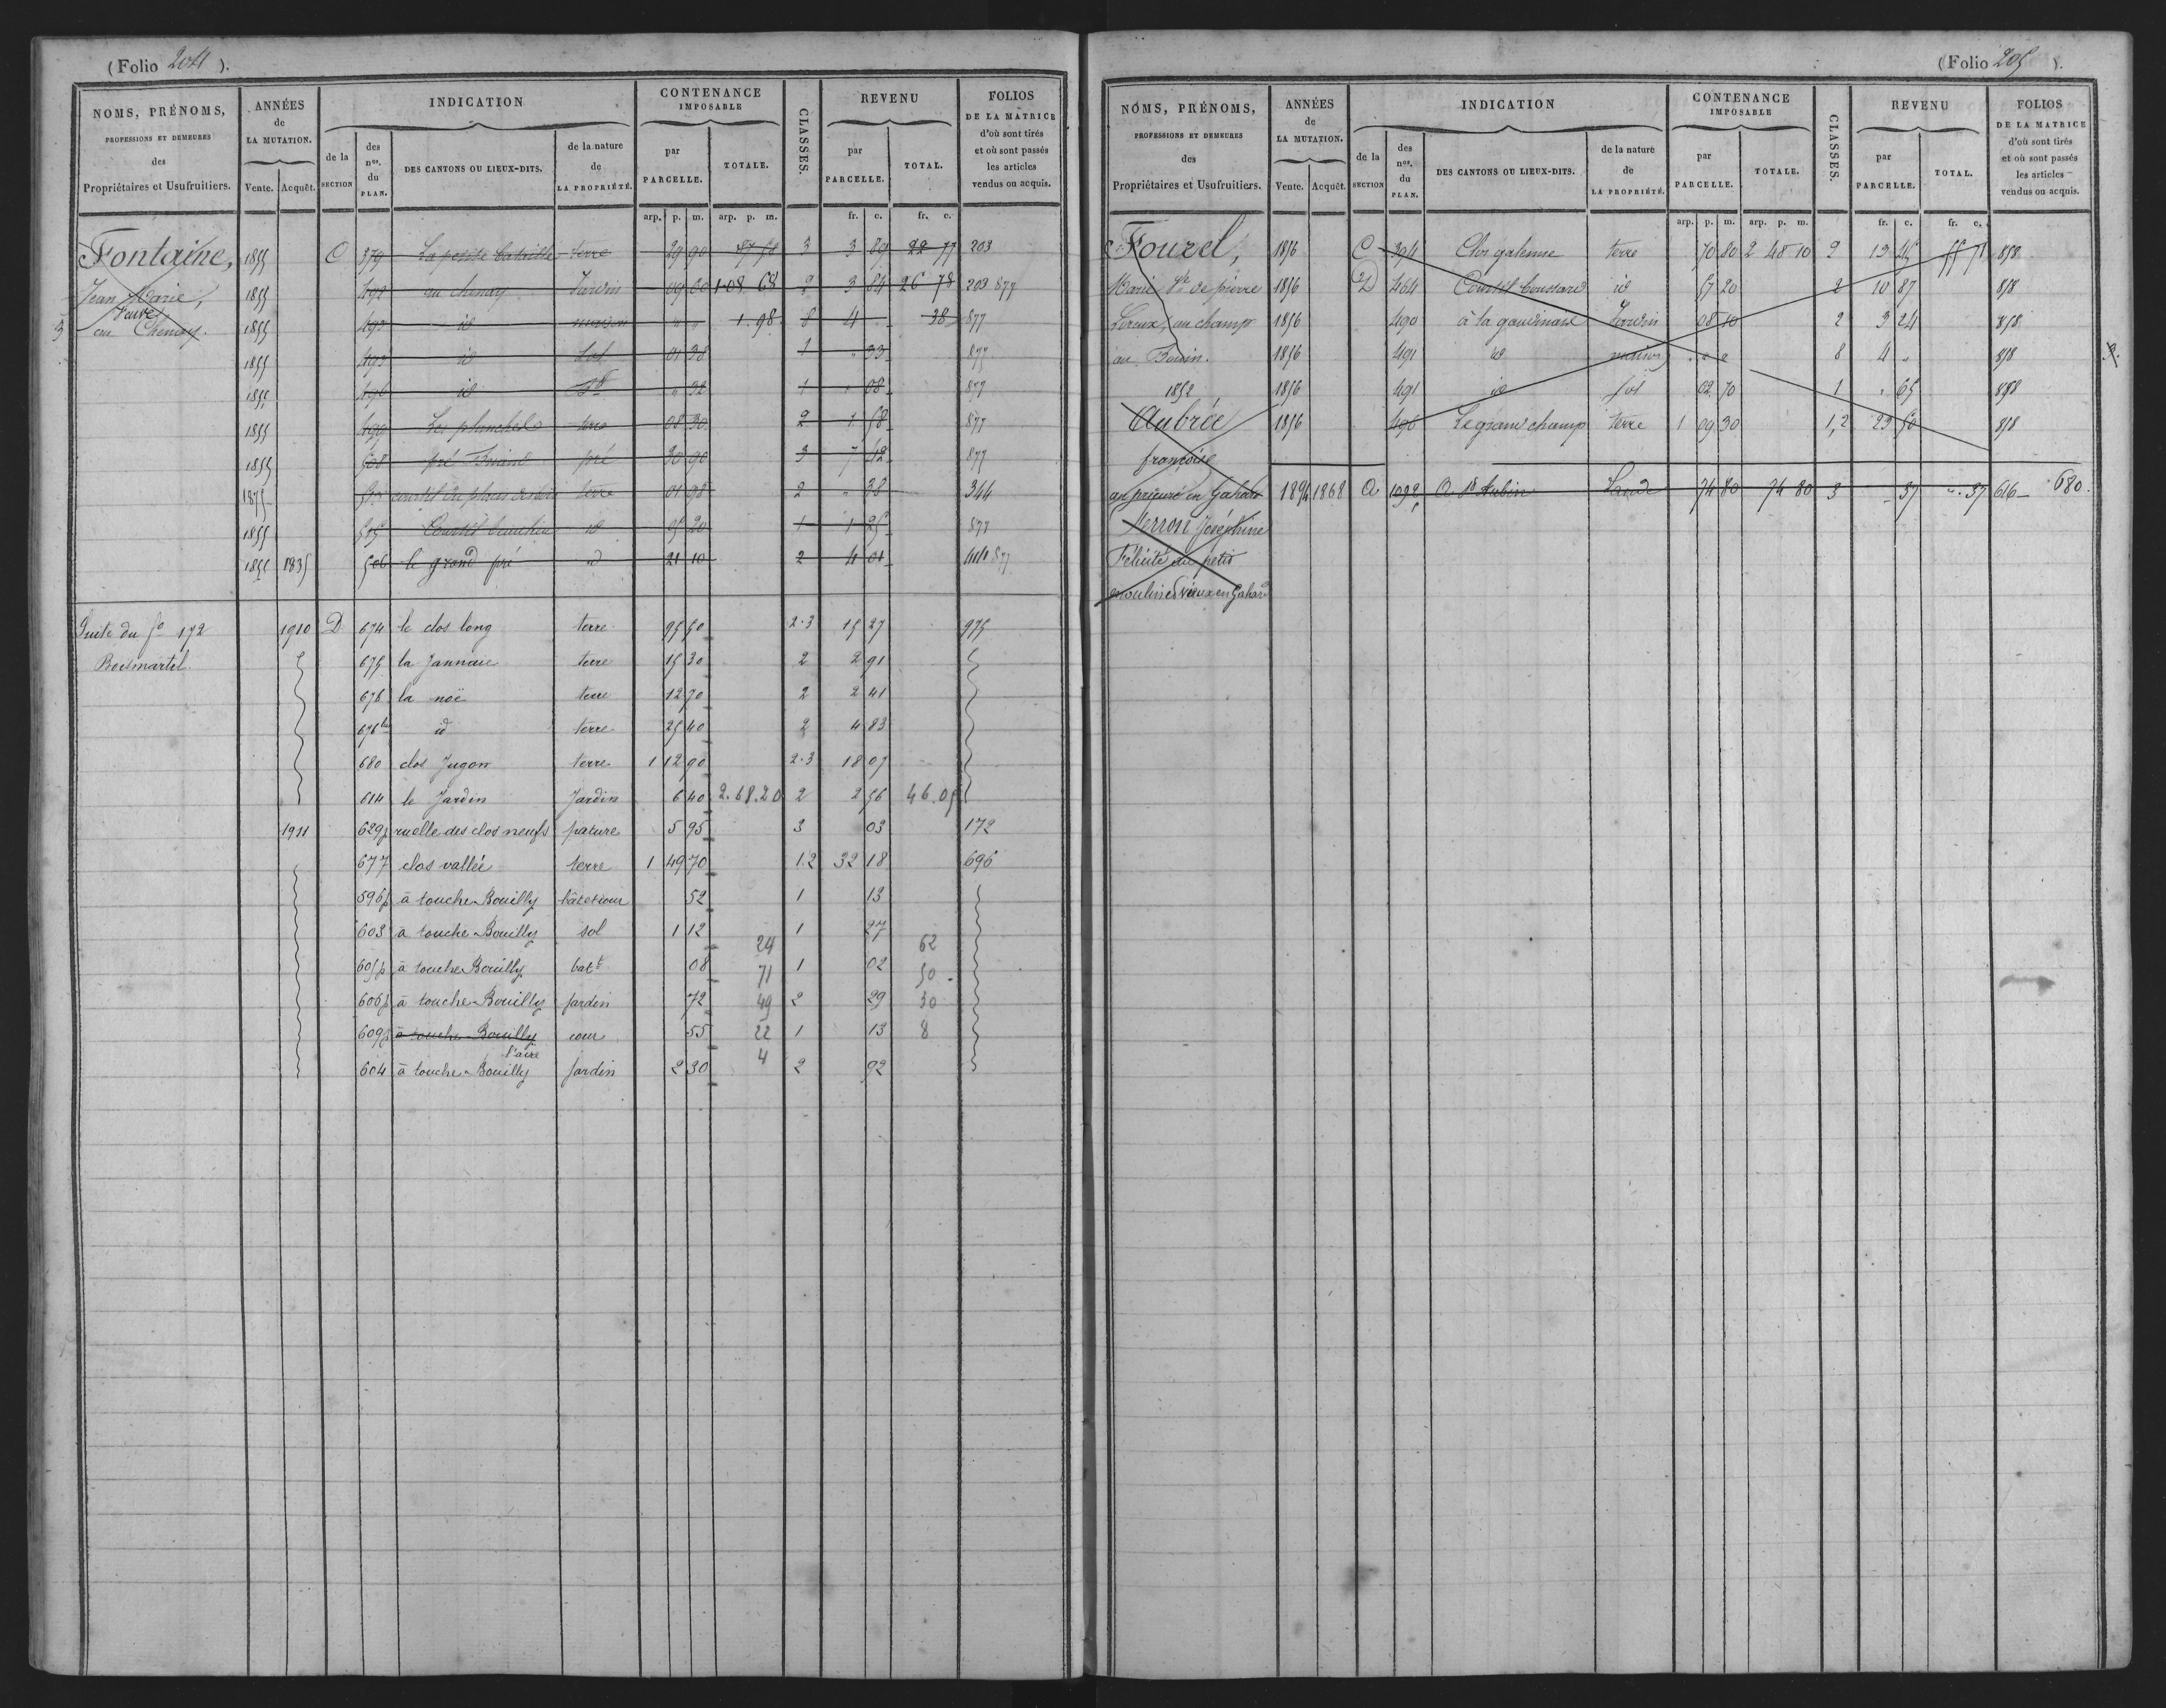 (Folio 204 ).
NOMS, PRÉNOMS, PROFESSIONS ET DEMEURES des Propriétaires et Usufruitiers. ANNÉES de LA MUTATION. Vente. Acquêt. INDICATION de la SECTION des nos. du PLAN. DES CANTONS OU LIEUX-DITS. de la nature de LA PROPRIÉTÉ. CONTENANCE IMPOSABLE par PARCELLE. TOTALE. CLASSES. REVENU par PARCELLE. TOTAL. FOLIOS DE LA MATRICE d'où sont tirés et où sont passés les articles vendus ou acquis.
arp. p. m. arp. p. m. fr. c. fr. c.
Fontaine, 1855 C 379 La petite bataille terre 29 90 87 58 3 3 89 22 77 203
Jean Marie, 1855 492 au chenay Jardin 09 60 1 08 68 2 3 84 26 78 203 877
Veuve
3 au Chenay. 1855 493 id maison " " 1. 98 8 4 . 38 877
1855 493 id sol 01 38 1 " 33 877
1855 496 id id " 32 1 " 08 877
1855 499 Les planches terre 08 30 2 1 58 877
1855 508 pré pré 30 90 3 7 42 877
1875 terre 01 98 2 " 38 344
1855 515 Courtil id 05 20 1 1 25 877
1855 1835 506 le grand pré id 21 10 2 4 01 444 877
Suite du fo 172 1910 D 674 le clos long terre 95 50 2.3 15 27 975
Boismartel 675 la Jannaie terre 15 30 2 2 91
676 la noë terre 12 70 2 2 41
676 bis id terre 25 40 2 4 83
680 clos Jugon terre 1 12 90 2.3 18 07
614 le Jardin Jardin 6 40 2.68.20 2 2 56 46.05
1911 629p ruelle des clos neufs pature 5 95 3 03 172
677 clos vallée terre 1 49 70 1.2 32 18 696
596p à touche Bouilly bât et cour 52 1 13
603 à touche Bouilly sol 1 12 1 27
24 62
605p à touche Bouilly batt 08 71 1 02 50
606p à touche Bouilly Jardin 72 49 2 29 30
609p à touche Bouilly cour 55 22 1 13 8
l'aire
604 à touche Bouilly Jardin 2 30 4 2 92
(Folio 205 ).
NOMS, PRÉNOMS, PROFESSIONS ET DEMEURES des Propriétaires et Usufruitiers. ANNÉES de LA MUTATION. Vente. Acquêt. INDICATION de la SECTION des nos. du PLAN. DES CANTONS OU LIEUX-DITS. de la nature de LA PROPRIÉTÉ. CONTENANCE IMPOSABLE par PARCELLE. TOTALE. CLASSES. REVENU par PARCELLE. TOTAL. FOLIOS DE LA MATRICE d'où sont tirés et où sont passés les articles vendus ou acquis.
arp. p. m. arp. p. m. fr. c. fr. c.
Fourel, 1856 C 394 Clos galenne terre 70 80 2 48 10 2 13 45 55 71 858
Marie Ve de pierre 1856 D 464 Courtil boussard id 57 20 2 10 87 858
Leroux, au champ 1856 490 à la gaudinaie Jardin 08 10 2 3 24 858
au Bouin. 1856 491 id maison " " 8 4 " 858
1852 1856 491 id sol 02 70 1 " 65 858
Aubrée 1856 496 Le grand champ terre 1 09 30 1,2 23 50 858
françoise
au prieuré en Gahard 1894 1868 A 1092p A St Aubin Lande 74 80 74 80 3 " 37 ". 37 616 680
Perron Joséphine
Félicité au petit
moulin es vieux en Gahard